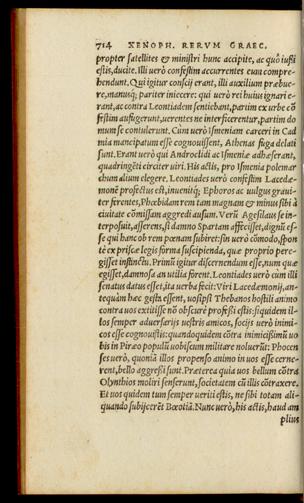 714 XENOPH. RERVM GRAEC.
propter satellites & ministri hunc accipite, ac quò iußi
estis, ducite. Illi verò confestim accurrentes eum compre-
hendunt. Qui igitur conscij erant, illi auxilium præbue-
re, manusq; pariter iniecere: qui verò rei huius ignari e-
rant, ac contra Leontiadem sentiebant, partim ex urbe cō
festim aufugerunt, uerentes ne interficerentur, partim do
mum se contulerunt. Cùm uerò Ismeniam carceri in Cad
mia mancipatum esse cognouissent, Athenas fuga delati
sunt. Erant uerò qui Androclidi ac Ismeniæ adhæserant,
quadringēti circiter uiri. His actis, pro Ismenia polemar
chum alium elegere. Leontiades uerò confestim Lacedæ-
monē profectus est, inuenitq; Ephoros ac uulgus graui-
ter ferentes, Phœbidam rem tam magnam & minus sibi à
ciuitate cōmissam aggredi ausum. Verū Agesilaus se in-
terposuit, asserens, si damno Spartam affecisset, dignū es-
se qui hanc ob rem pœnam subiret: sin uerò cōmodo, spon
tè ex prisca legis forma suscipienda, quæ proprio pere-
gisset instinctu. Primū igitur discernendum esse, num quæ
egisset, damnosa an utilia forent. Leontiades uerò cùm illi
senatus datus esset, ita uerba fecit: Viri Lacedæmonij, an-
tequàm hæc gesta essent, uosipsi Thebanos hostili animo
contra uos extitisse nō obscurè professi estis: siquidem il-
los semper aduersarijs uestris amicos, socijs uerò inimi-
cos esse cognouistis: quandoquidem cōtra inimicißimū uo
bis in Piræo populū uobiscum militare noluerūt: Phocen
ses uerò, quoniā illos propenso animo in uos esse cerne-
rent, bello aggreßi sunt. Præterea quia uos bellum cōtra
Olynthios moliri senserunt, societatem cū illis cōtraxere.
Et uos quidem tum semper ueriti estis, ne sibi totam ali-
quando subijcerēt Bœotiā. Nunc uerò, his actis, haud am
plius